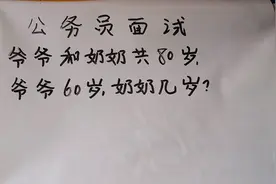 公务员面试
爷爷和奶奶共80岁,
爷爷60岁,奶奶几岁?